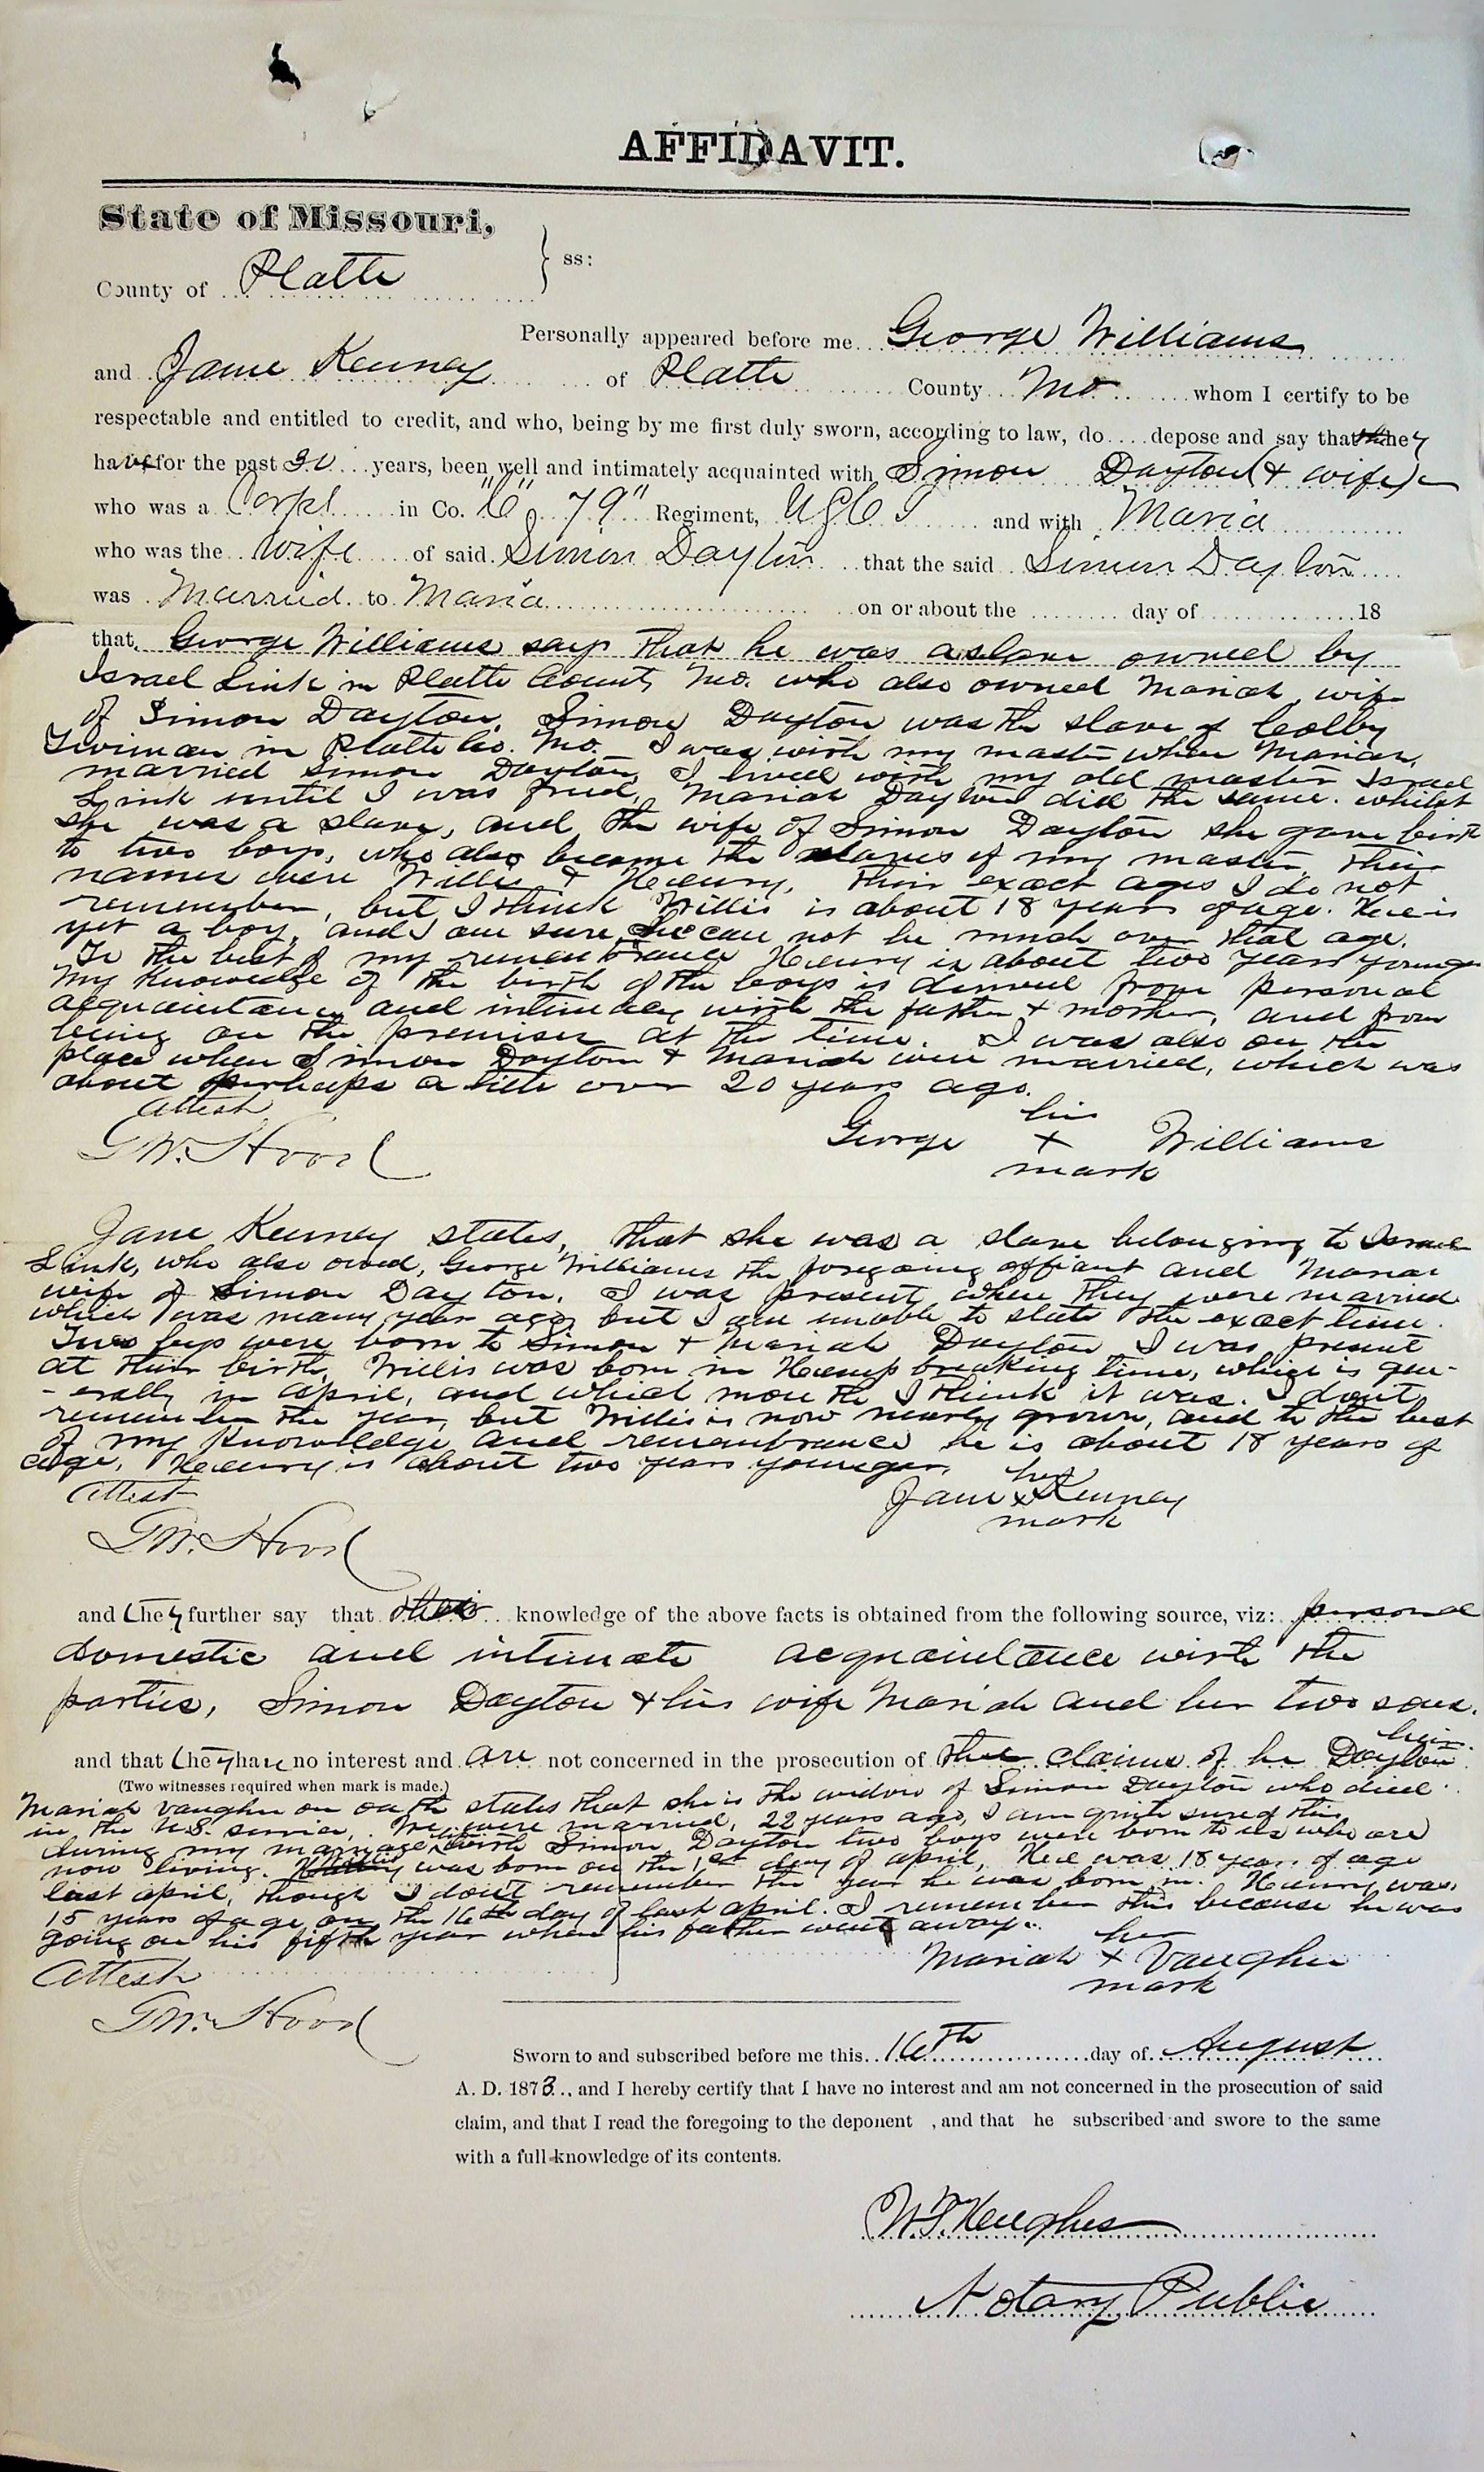 AFFIDAVIT.
State of Missouri,
County of Platte } ss:
Personally appeared before me George Williams
and Jane Kenney of Platte County Mo whom I certify to be
respectable and entitled to credit, and who, being by me first duly sworn, according to law, do depose and say that they
have for the past 30 years, been well and intimately acquainted with Simon Dayton (& wife)
who was a Corpl in Co. "C", 79" Regiment, USCT and with Maria
who was the wife of said Simon Dayton that the said Simon Dayton
was Married to Maria on or about the day of 18
that George Williams says that he was a slave owned by
Israel Link in Platte County Mo. who also owned Mariah, wife
of Simon Dayton, Simon Dayton was the slave of Colby
in Platte Co. Mo. I was with my master when Mariah
married Simon Dayton, I lived with my old master Israel
Link until I was freed, Mariah Dayton did the same. whilst
she was a slave, and the wife of Simon Dayton she gave birth
to two boys, who also became the slaves of my master, their
names were Willis & Henry, their exact ages I do not
remember, but I think Willis is about 18 years of age. He is
yet a boy, and I am sure he can not be much over that age.
To the best of my remembrance Henry is about two years younger
My knowledge of the birth of the boys is derived from personal
acquaintance and intimacy with the father & mother, and from
being on the premises at the time. I was also on the
place when Simon Dayton & Mariah were married, which was
about perhaps a little over 20 years ago.
Attest his
G.W. Hood George + Williams
mark
Jane Kenney states, that she was a slave belonging to Israel
Link, who also owned, George Williams the foregoing affiant and Mariah
wife of Simon Dayton. I was present when they were married
which was many year ago, but I am unable to state the exact time.
Two boys were born to Simon & Mariah Dayton I was present
at their birth, Willis was born in Hemp breaking time, which is gen-
-erally in April, and which month I think it was. I dont
remember the year, but Willis is now nearly grown, and to the best
of my knowledge and remembrance he is about 18 years of
age, Henry is about two years younger,
Attest her
Jane x Kenney
mark
G.W. Hood
and they further say that their knowledge of the above facts is obtained from the following source, viz: personal
domestic and intimate acquaintance with the
parties, Simon Dayton & his wife Mariah and her two sons.
and that they have no interest and are not concerned in the prosecution of the claims of Dayton heirs.
(Two witnesses required when mark is made.)
Mariah Vaughn on oath states that she is the widow of Simon Dayton who died
in the U.S. service, We were married, 22 years ago, I am quite sure of this
during my marriage with Simon Dayton two boys were born to us who are
now living. was born on the 1st day of April, He was 18 years of age
last April, though I don't remember the year he was born in. Henry was
15 years of age on the 16th day of last April. I remember this because he was
going on his fifth year when his father went away.
her
Attest Mariah + Vaughn
mark
G.W. Hood
Sworn to and subscribed before me this 16th day of August
A. D. 1873., and I hereby certify that I have no interest and am not concerned in the prosecution of said
claim, and that I read the foregoing to the deponent , and that he subscribed and swore to the same
with a full knowledge of its contents.
Hughes
Notary Public